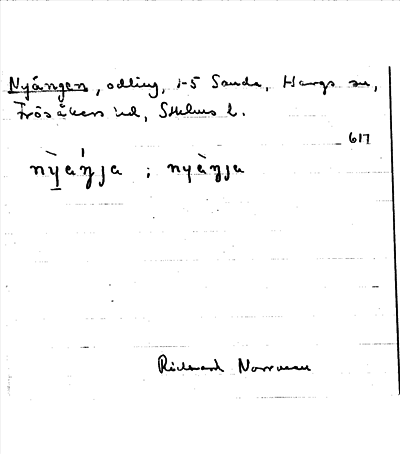 Nyängen, odling, 1-5 Sanda, Hargs sn,
Frösåkers hd, Sthlms l.
617
nỳa̍ŋja ; nyàŋja
Richard Norrman